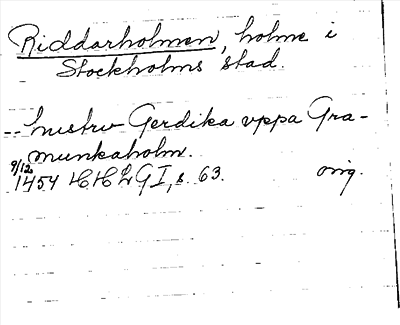 Riddarholmen, holme i
Stockholms stad.
-- hustrv Gerdika vppa Gra-
munkaholm.
9/12
1454 HHLG I, s. 63. orig.